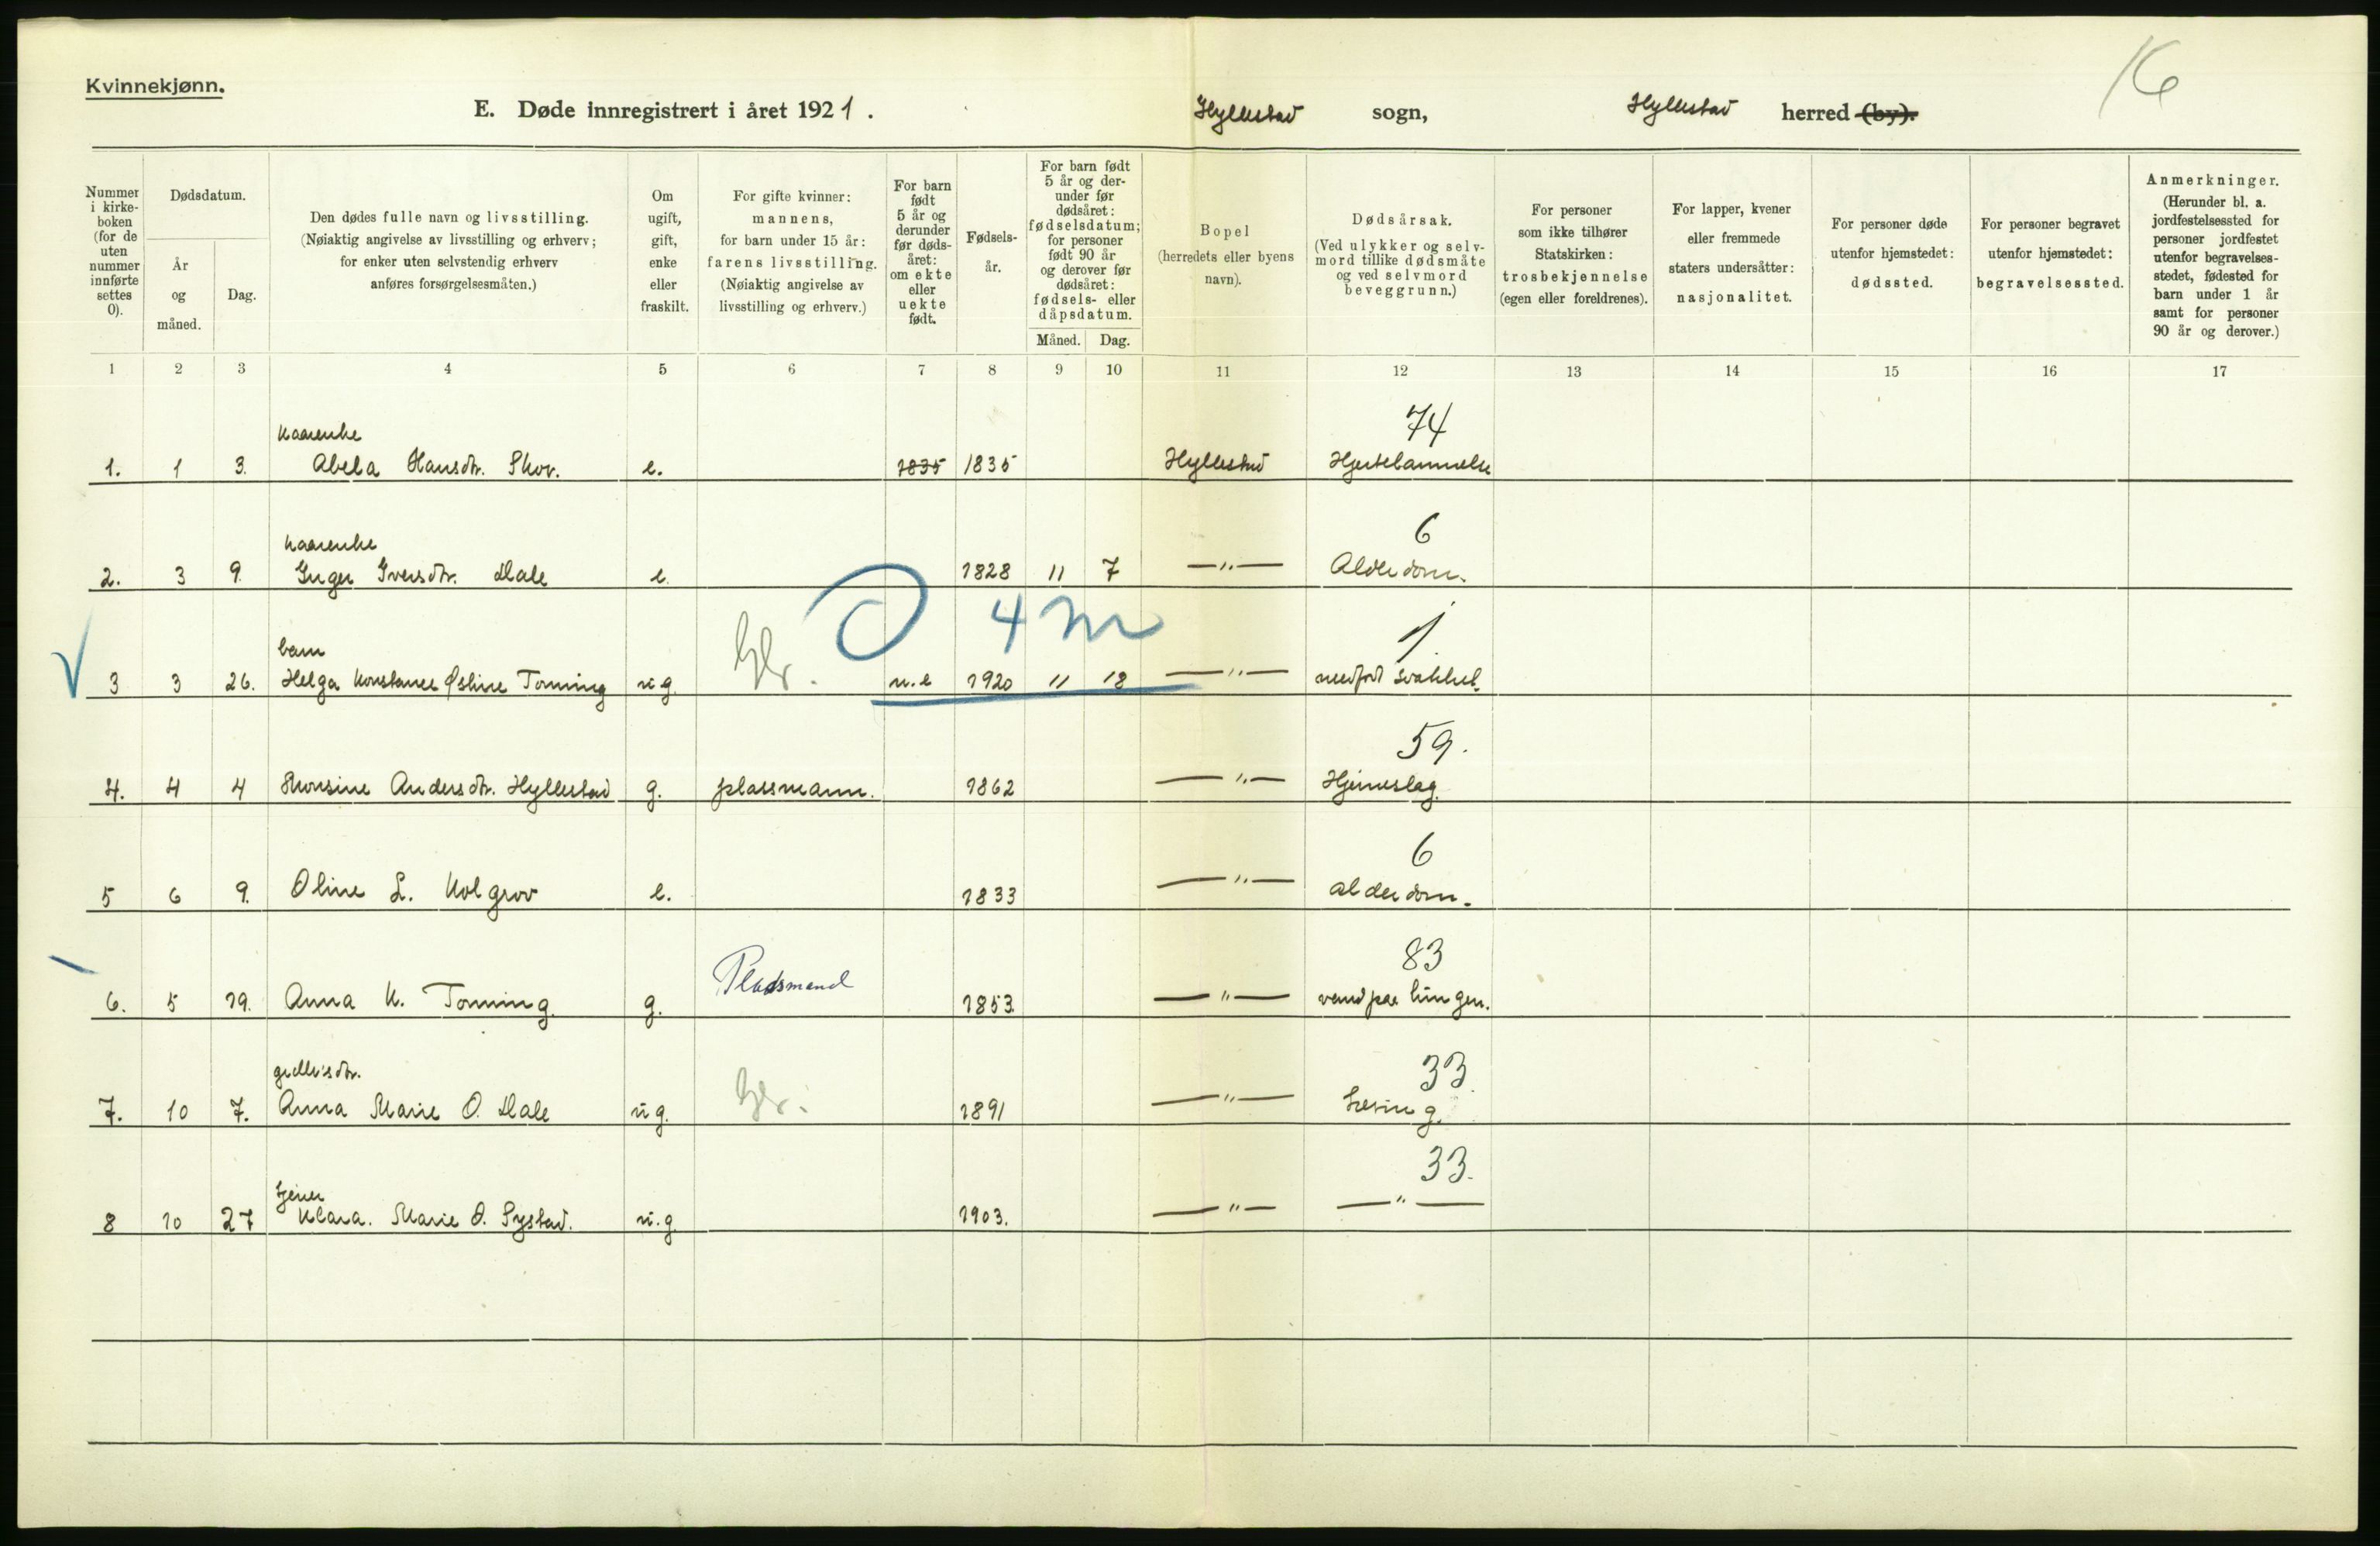 Kvinnekjønn.
E. Døde innregistrert i året 1921. Hyllestad sogn, Hyllestad herred (by).
16
Nummer i kirkeboken (for de uten nummer innførte settes 0).
Dødsdatum.
År og måned.
Dag.
Den dødes fulle navn og livsstilling. (Nøiaktig angivelse av livsstilling og erhverv; for enker uten selvstendig erhverv anføres forsørgelsesmåten.)
Om ugift, gift, enke eller fraskilt.
For gifte kvinner: mannens, for barn under 15 år: farens livsstilling. (Nøiaktig angivelse av livsstilling og erhverv.)
For barn født 5 år og derunder før dødsåret: om ekte eller uekte født.
Fødselsår.
For barn født 5 år og derunder før dødsåret: fødselsdatum; for personer født 90 år og derover før dødsåret: fødsels- eller dåpsdatum.
Måned. Dag.
Bopel (herredets eller byens navn).
Dødsårsak. (Ved ulykker og selvmord tillike dødsmåte og ved selvmord beveggrunn.)
For personer som ikke tilhører Statskirken: trosbekjennelse (egen eller foreldrenes).
For lapper, kvener eller fremmede staters undersåtter: nasjonalitet.
For personer døde utenfor hjemstedet: dødssted.
For personer begravet utenfor hjemstedet: begravelsessted.
Anmerkninger. (Herunder bl. a. jordfestelsessted for personer jordfestet utenfor begravelsesstedet, fødested for barn under 1 år samt for personer 90 år og derover.)
1 2 3 4 5 6 7 8 9 10 11 12 13 14 15 16 17
kaarenke 74
1. 1 3. Abela Hansdtr. Skor. e. 1835 1835 Hyllestad Hjertelammelse
kaarenke 6
2. 3 9. Inger Iversdtr. Dale e. 1828 11 7 —"— Alderdom.
4 m
barn 1
3 3 26. Helga Konstance Østine Torning ug. u.e 1920 11 18 —"— medfødt svakhet.
59.
4. 4 4 Thorsine Andersdtr. Hyllestad g. plassmann. 1862 —"— Hjerneslag.
6
5 6 9. Oline L. Kolgrov e. 1833 —"— alderdom.
83
6. 5 19. Anna K. Torning. g. Pladsmand 1853. —"— vand paa lungen.
33.
7. 10 7. Anna Marie O. Dale ug. 1891 —"— Tæring.
33.
8 10 27 Klara. Marie O. Systad. u.g 1903. —"— —"—